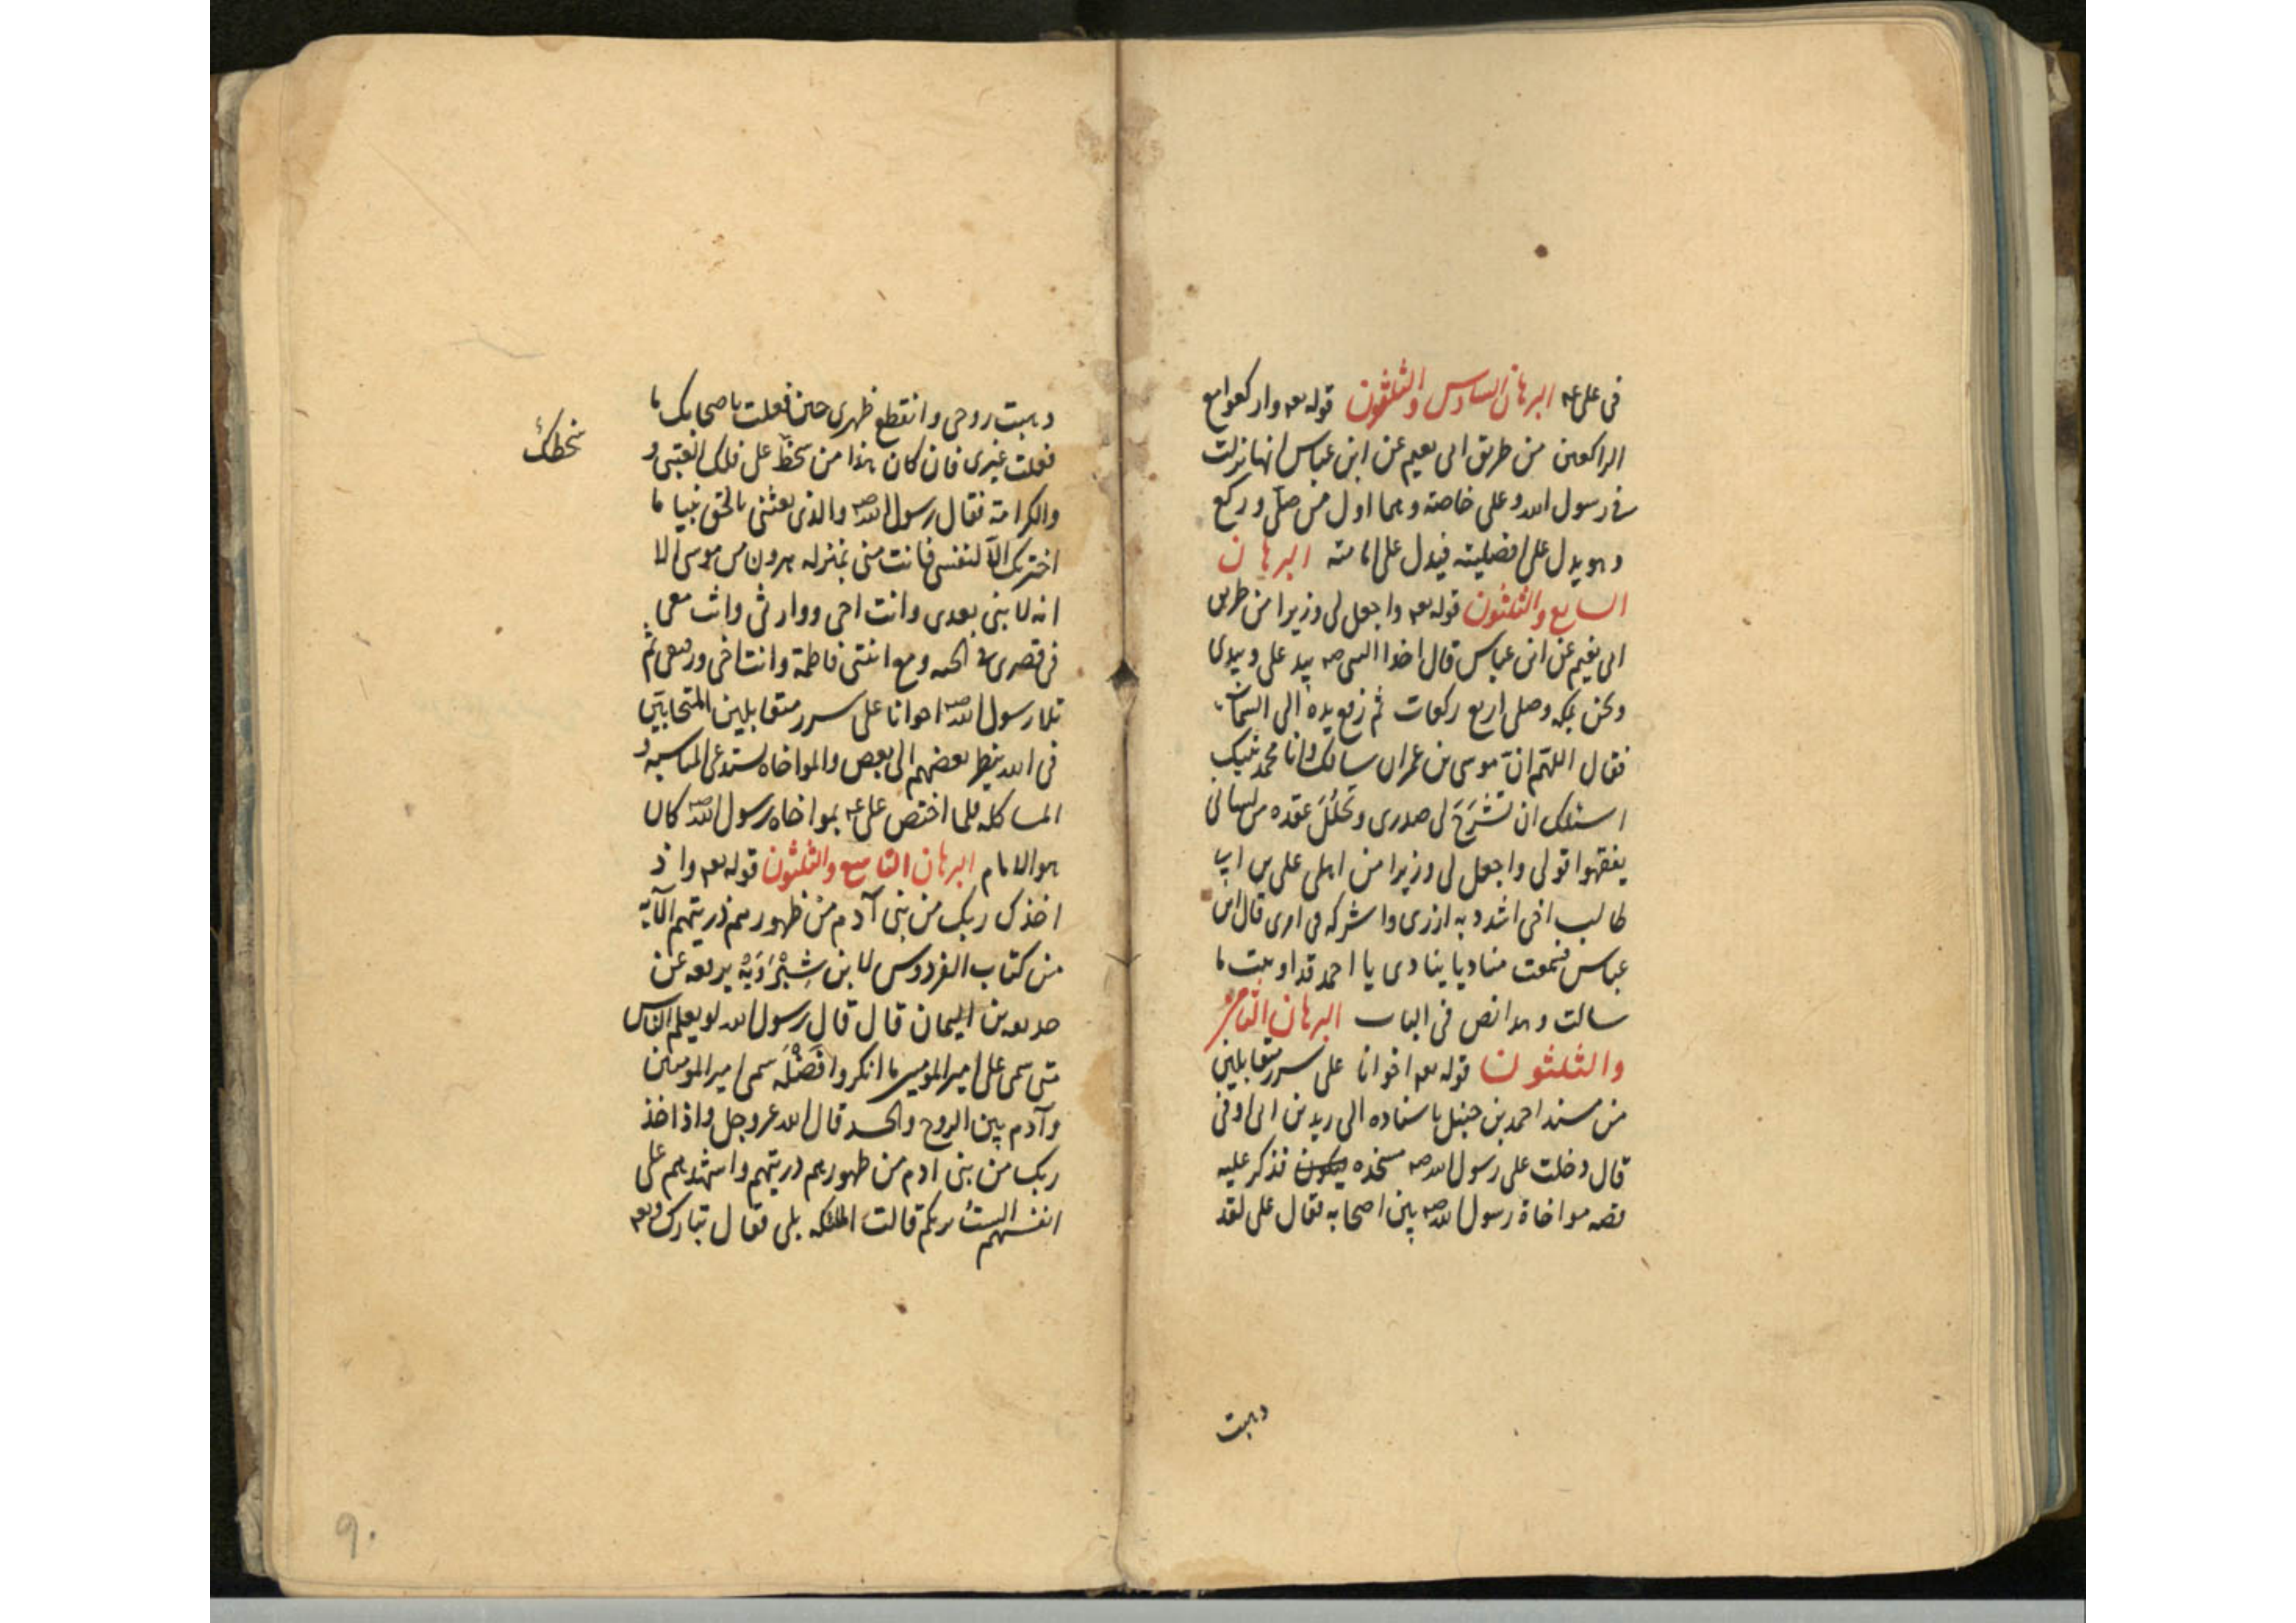 في على عه البرهان السادس والثلثون قوله تعه واركعوا مع
الراكعين من طريق ابى نعيم عن ابن عباس انها نزلت
في رسول الله وعلى خاصة وهما اول من صلّى وركع
وهو يدل على افضليته فيدل على امامته البرهان
السابع والثلثون قوله تعه واجعل لى وزيرا من طريق
ابى نعيم عن ابن عباس قال اخذ النبى صه بيد على وبيدى
ونحن بمكه وصلى اربع ركعات ثم رفع يده الى السماء
فقال اللهم انّ موسى بن عمران سالك وانا محمد نبيك
اسئلك ان تَشْرَحَ لى صدرى وتحلُلَ عقده من لسانى
يفقهوا قولى واجعل لى وزيرا من اهلى على بن ابى
طالب اخى اشدد به ازرى واشركه فى امرى قال ابن
عباس فسمعت مناديا ينادى يا احمد قد اوتيت ما
سالت وهذا نص فى الباب البرهان الثامن
والثلثون قوله تعه اخوانا على سرر متقابلين
من مسند احمد بن حنبل باسناده الى زيد بن ابى اوفى
قال دخلت على رسول الله صه مسجده فذكر عليه
قصه مواخاة رسول الله صه بين اصحابه فقال على لقد
ذهبت
ذهبت روحى وانقطع ظهرى حين فعلت باصحابك ما
فعلت غيرى فان كان هذا من سخط على فلك العتبى و
سخطك
والكرامة فقال رسول الله صه والذى بعثنى بالحق نبيا ما
اخترتك الّا لنفسى فانت منى بمنزله هرون من موسى الا
انه لا نبى بعدى وانت اخى ووارثى وانت معى
فى قصرى فى الجنه ومع ابنتى فاطمة وانت اخى ورفيقى ثم
تلا رسول الله صه اخوانا على سرر متقابلين المتحابين
فى الله ينظر بعضهم الى بعض والمواخاه يستدعى المناسبه و
المشاكله فلما اختص على عه بمواخاه رسول الله صه كان
هو الامام البرهان التاسع والثلثون قوله تعه واذ
اخذ ربك من بنى آدم من ظهورهم ذريتهم الآية
من كتاب الفردوس لابن شِيْرَوَيْه يرفعه عن
حذيفه بن اليمان قال قال رسول الله لو يعلم الناس
متى سمى على امير المومنين ما انكروا فَضْلَه سمى امير المومنين
وآدم بين الروح والجسد قال الله عز وجل واذ اخذ
ربك من بنى ادم من ظهورهم ذريتهم واشهدهم على
انفسهم الستُ بربكم قالت الملئكه بلى فقال تبارك وتعه
٩٠